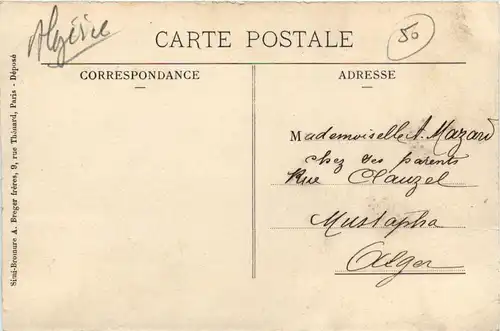 Algérie
50
CARTE POSTALE
CORRESPONDANCE
ADRESSE
Mademoiselle A. Mazard
chez ses parents
Rue Clauzel
Mustapha
Alger
Simi-Bromure A. Breger frères, 9, rue Thénard, Paris - Déposé